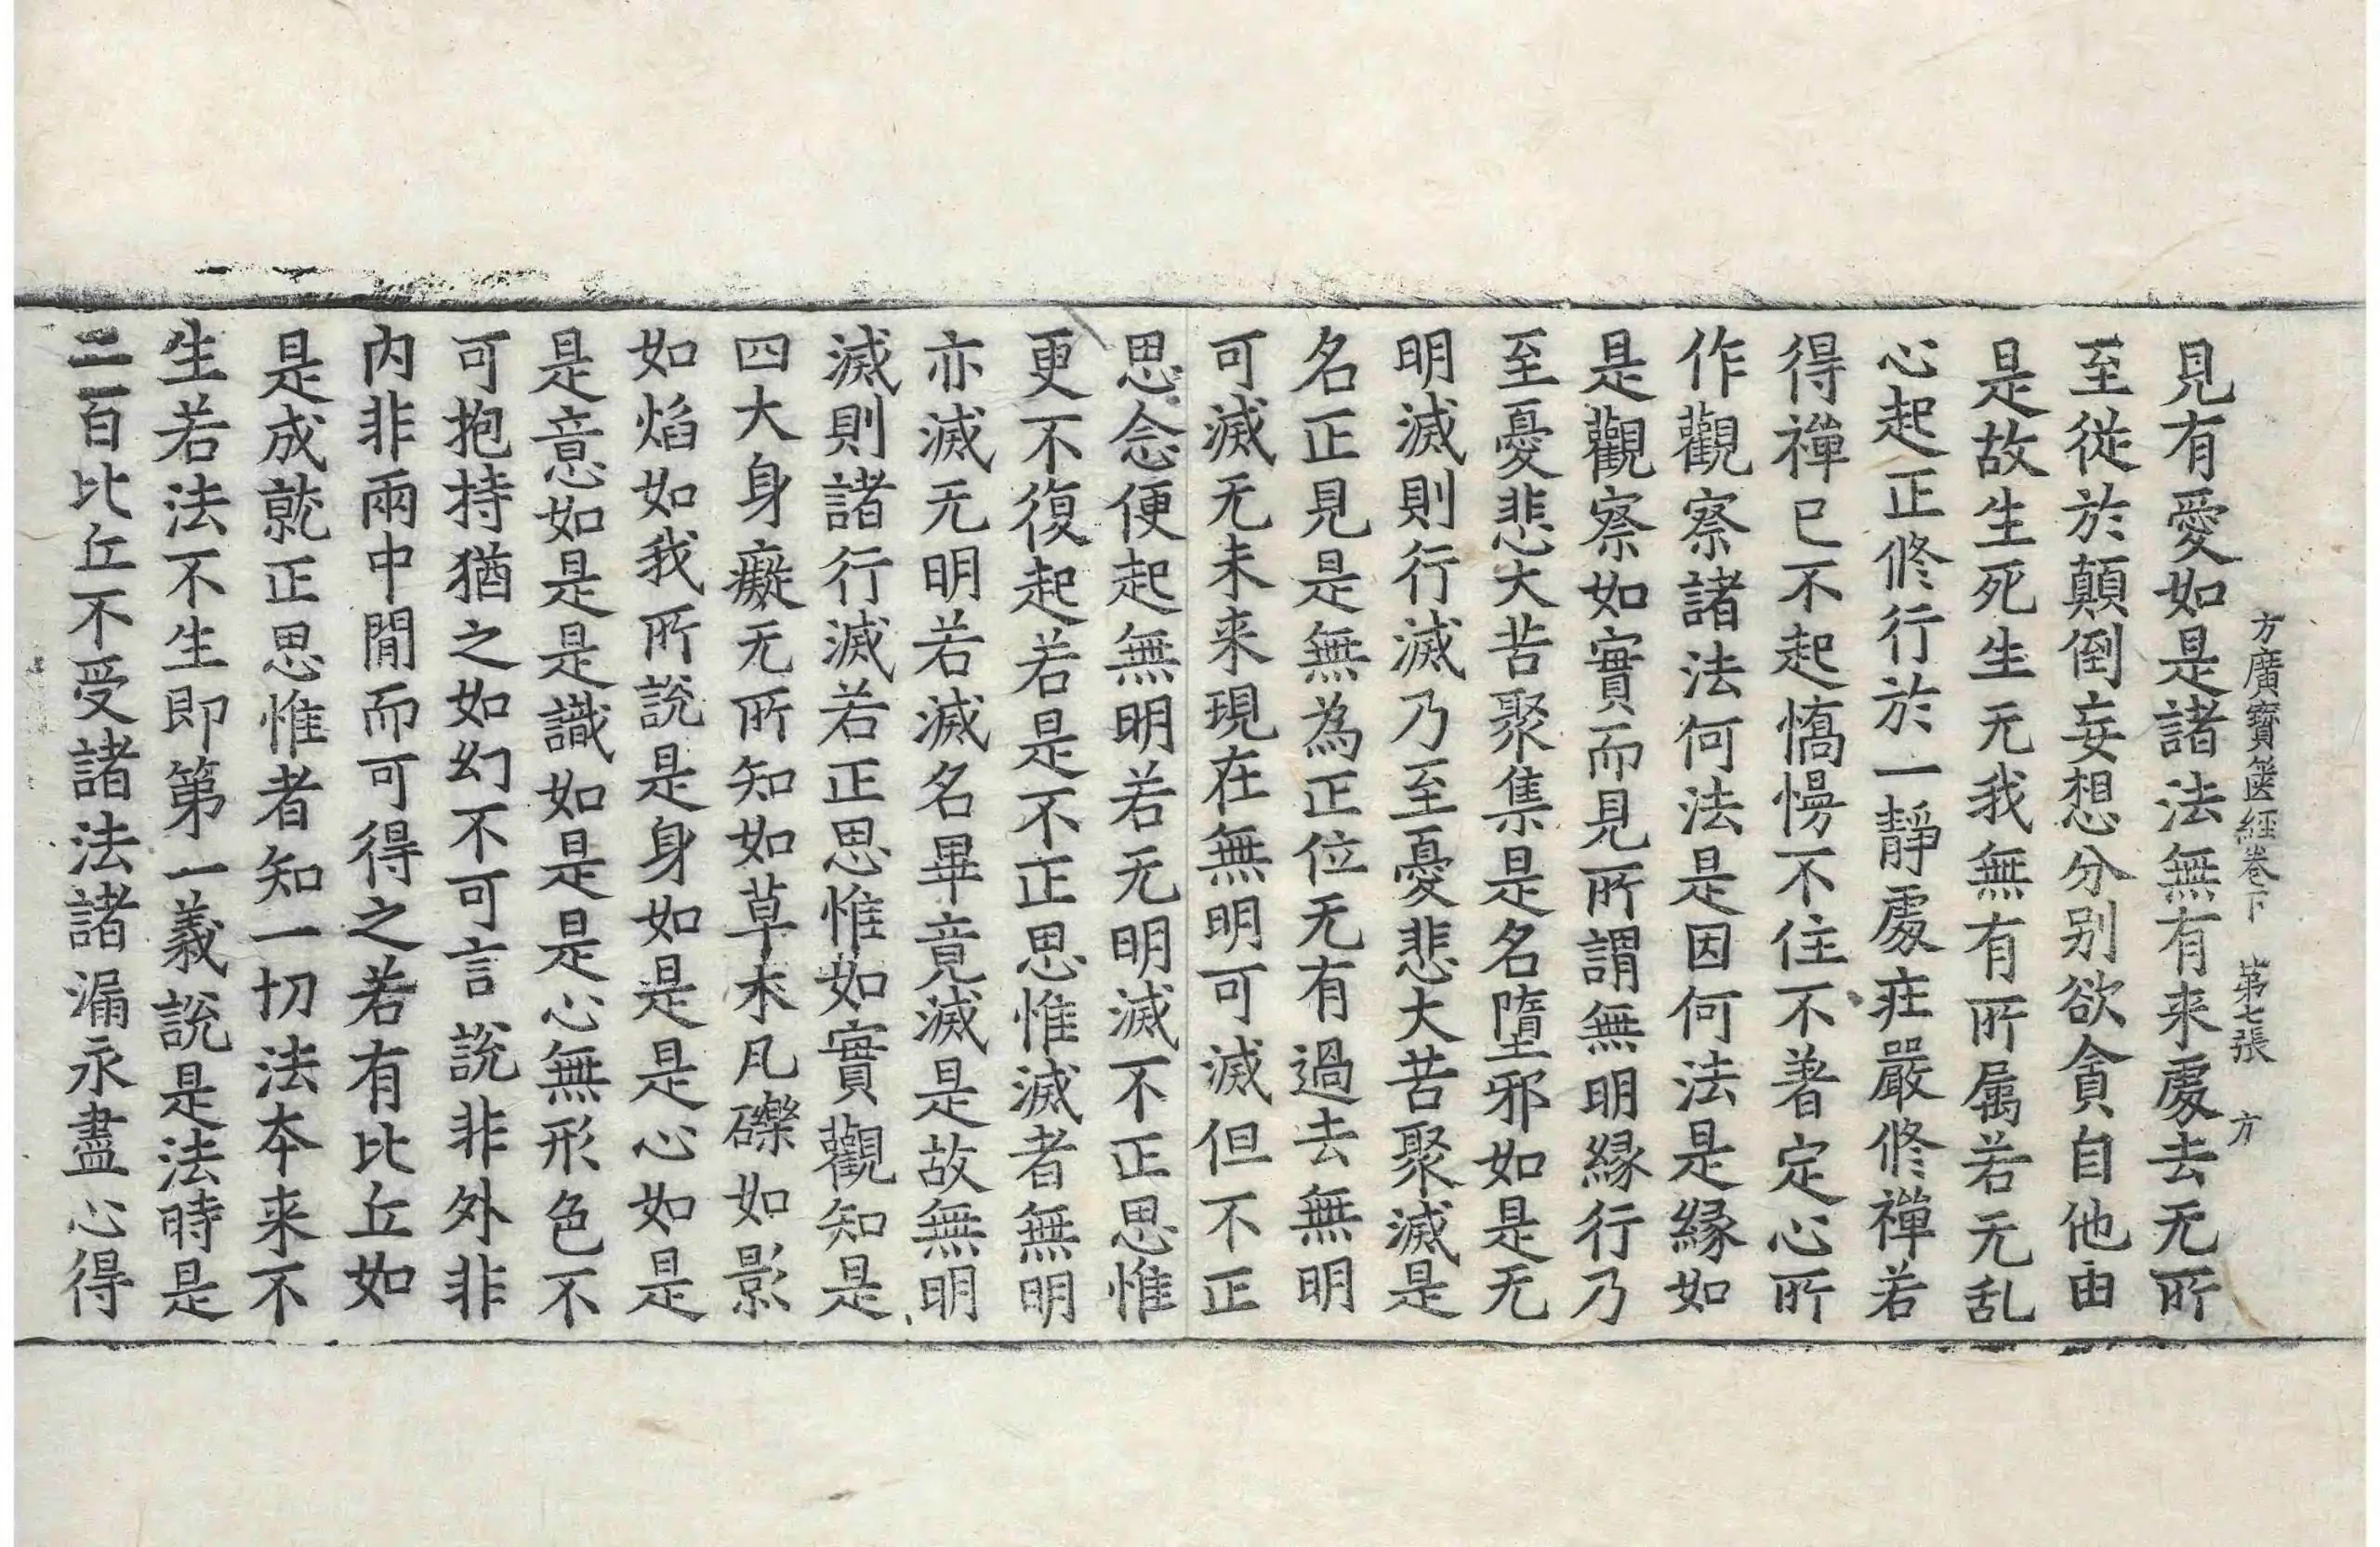 方廣寶篋經卷下 第七張 方
見有愛如是諸法無有来處去无所
至從於顛倒妄想分别欲貪自他由
是故生死生无我無有所属若无乱
心起正修行於一靜處庄嚴修禪若
得禪已不起憍慢不住不著定心所
作觀察諸法何法是因何法是縁如
是觀察如實而見所謂無明縁行乃
至憂悲大苦聚集是名墮邪如是无
明滅則行滅乃至憂悲大苦聚滅是
名正見是無為正位无有過去無明
可滅无未来現在無明可滅但不正
思念便起無明若无明滅不正思惟
更不復起若是不正思惟滅者無明
亦滅无明若滅名畢竟滅是故無明
滅則諸行滅若正思惟如實觀知是
四大身癡无所知如草木凡礫如影
如焰如我所說是身如是是心如是
是意如是是識如是是心無形色不
可抱持猶之如幻不可言說非外非
内非兩中閒而可得之若有比丘如
是成就正思惟者知一切法本来不
生若法不生即第一義說是法時是
二百比丘不受諸法諸漏永盡心得